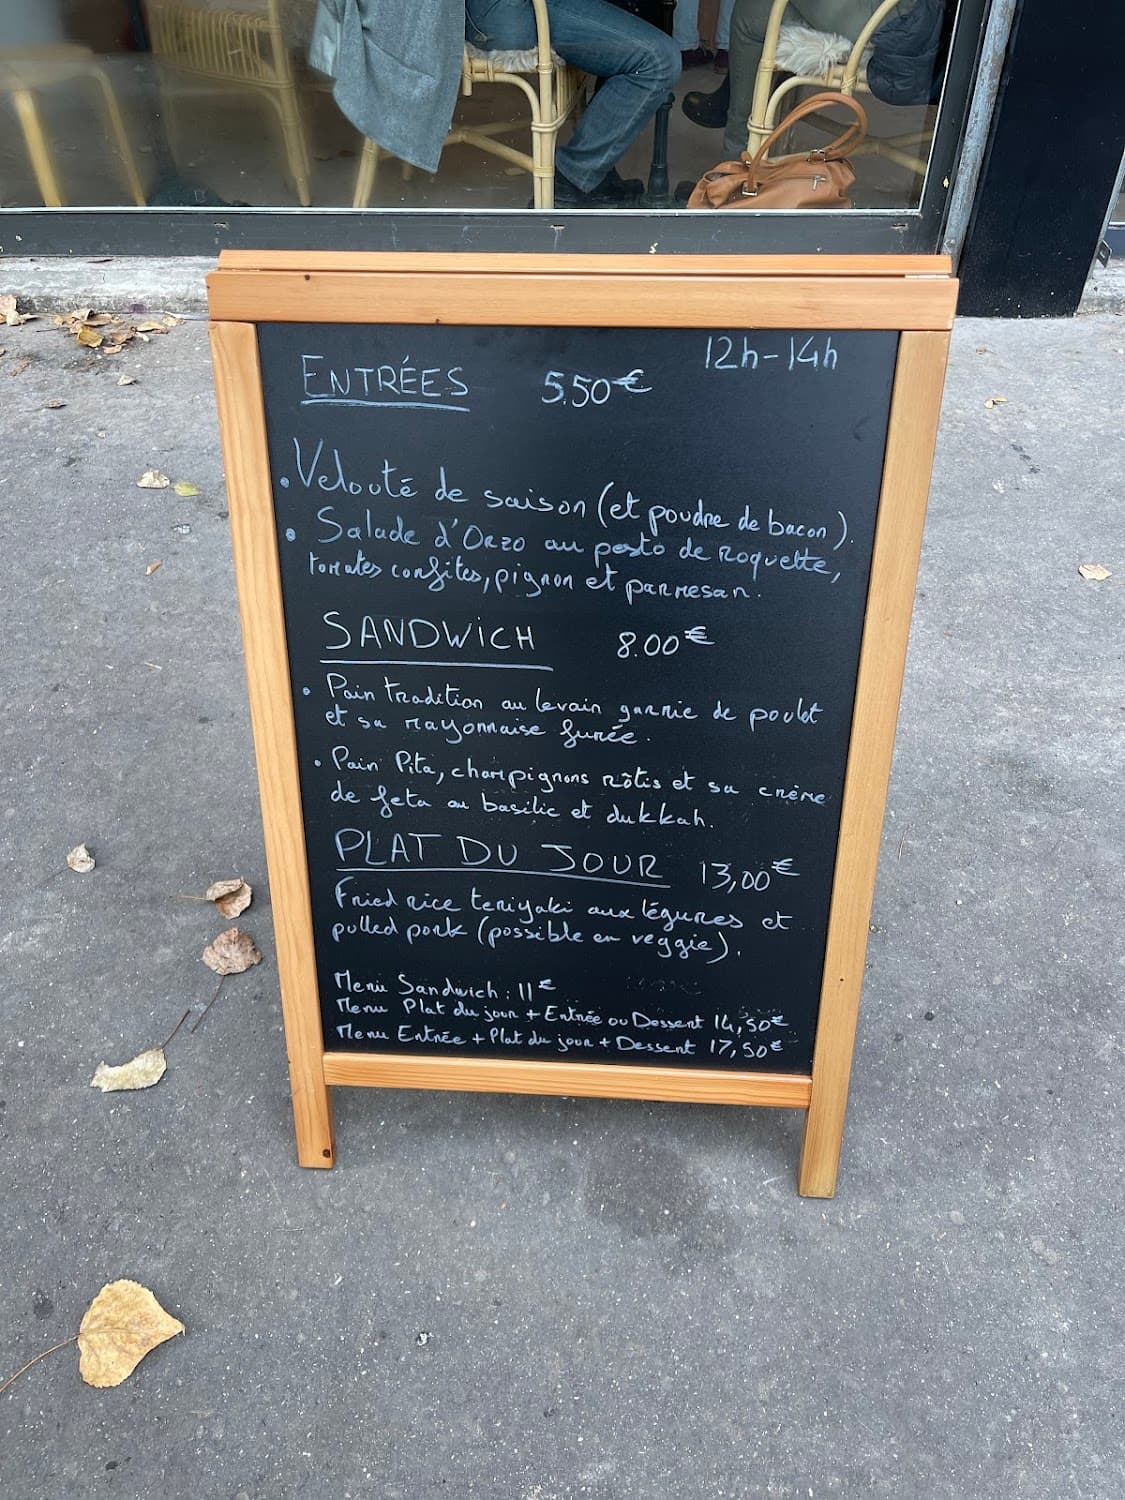 12h-14h
ENTRÉES 5.50€
• Velouté de saison (et poudre de bacon).
• Salade d'Orzo au pesto de roquette,
tomates confites, pignon et parmesan.
SANDWICH 8.00€
• Pain tradition au levain garnie de poulet
et sa mayonnaise fumée.
• Pain Pita, champignons rôtis et sa crème
de feta au basilic et dukkah.
PLAT DU JOUR 13,00€
Fried rice teriyaki aux légumes et
pulled pork (possible en veggie).
Menu Sandwich : 11€
Menu Plat du jour + Entrée ou Dessert 14,50€
Menu Entrée + Plat du jour + Dessert 17,50€